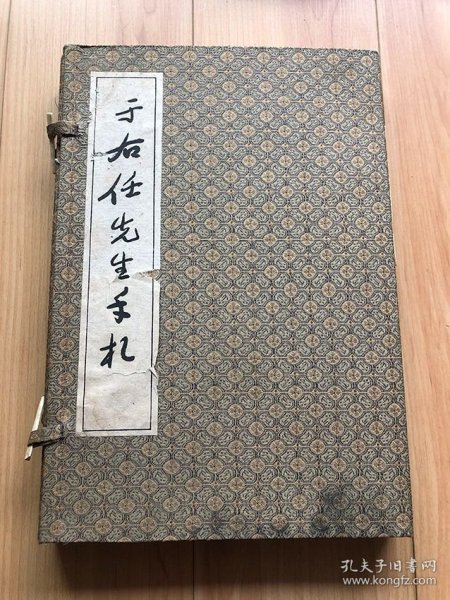 于右任先生手札
孔夫子旧书网
www.kongfz.com